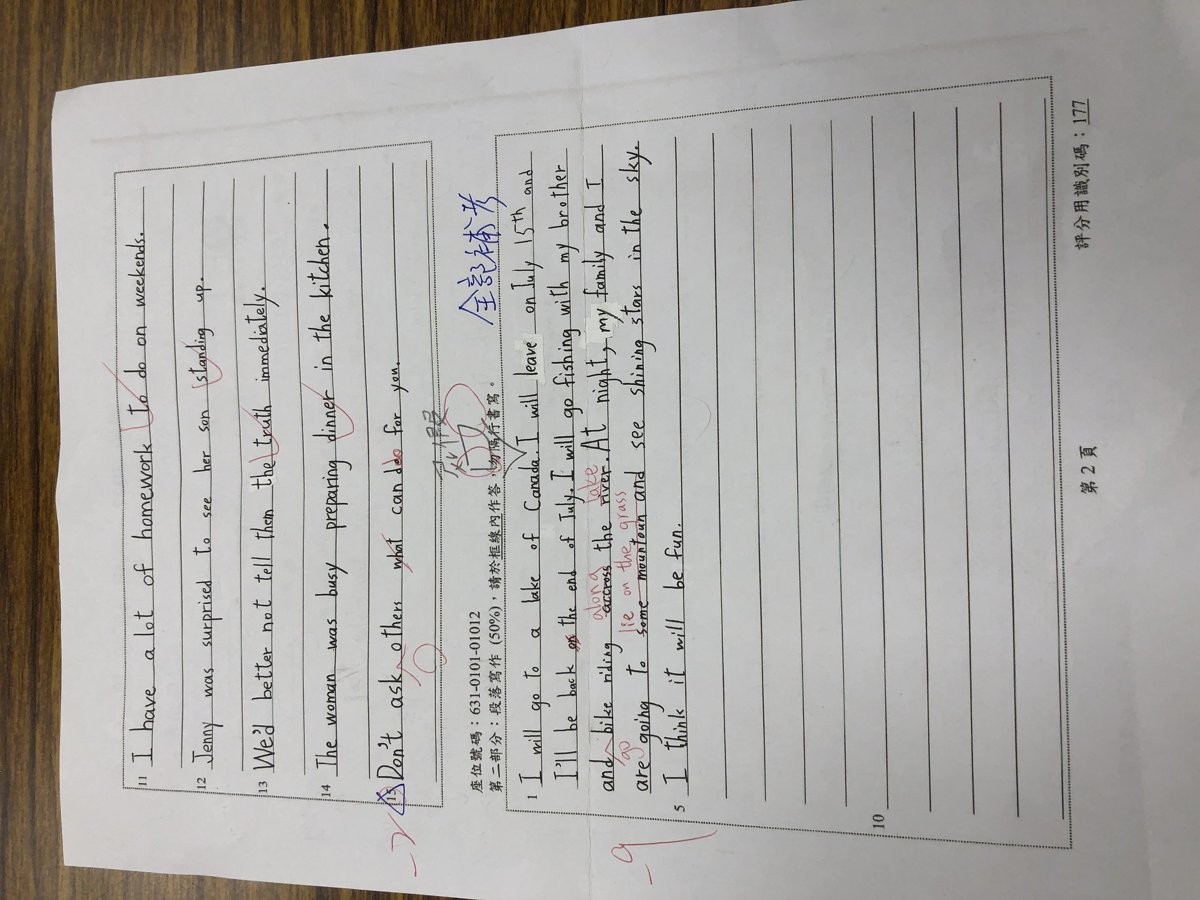 11 I have a lot of homework to do on weekends.
12 Jenny was surprised to see her son standing up.
13 We'd better not tell them the truth immediately.
14 The woman was busy preparing dinner in the kitchen.
-2 15 Don't ask others what can do for you.
座位號碼：631-0101-01012
第二部分：段落寫作 (50%)，請於框線內作答，勿隔行書寫。
全記補考
1 I will go to a lake of Canada. I will leave on July 15th and
I'll be back the end of July. I will go fishing with my brother
along lake
and bike riding accross the river. At night, my family and I
go lie on the grass
are going to some mountoun and see shining stars in the sky.
5 I think it will be fun.
-9
10
第 2 頁
評分用識別碼：177